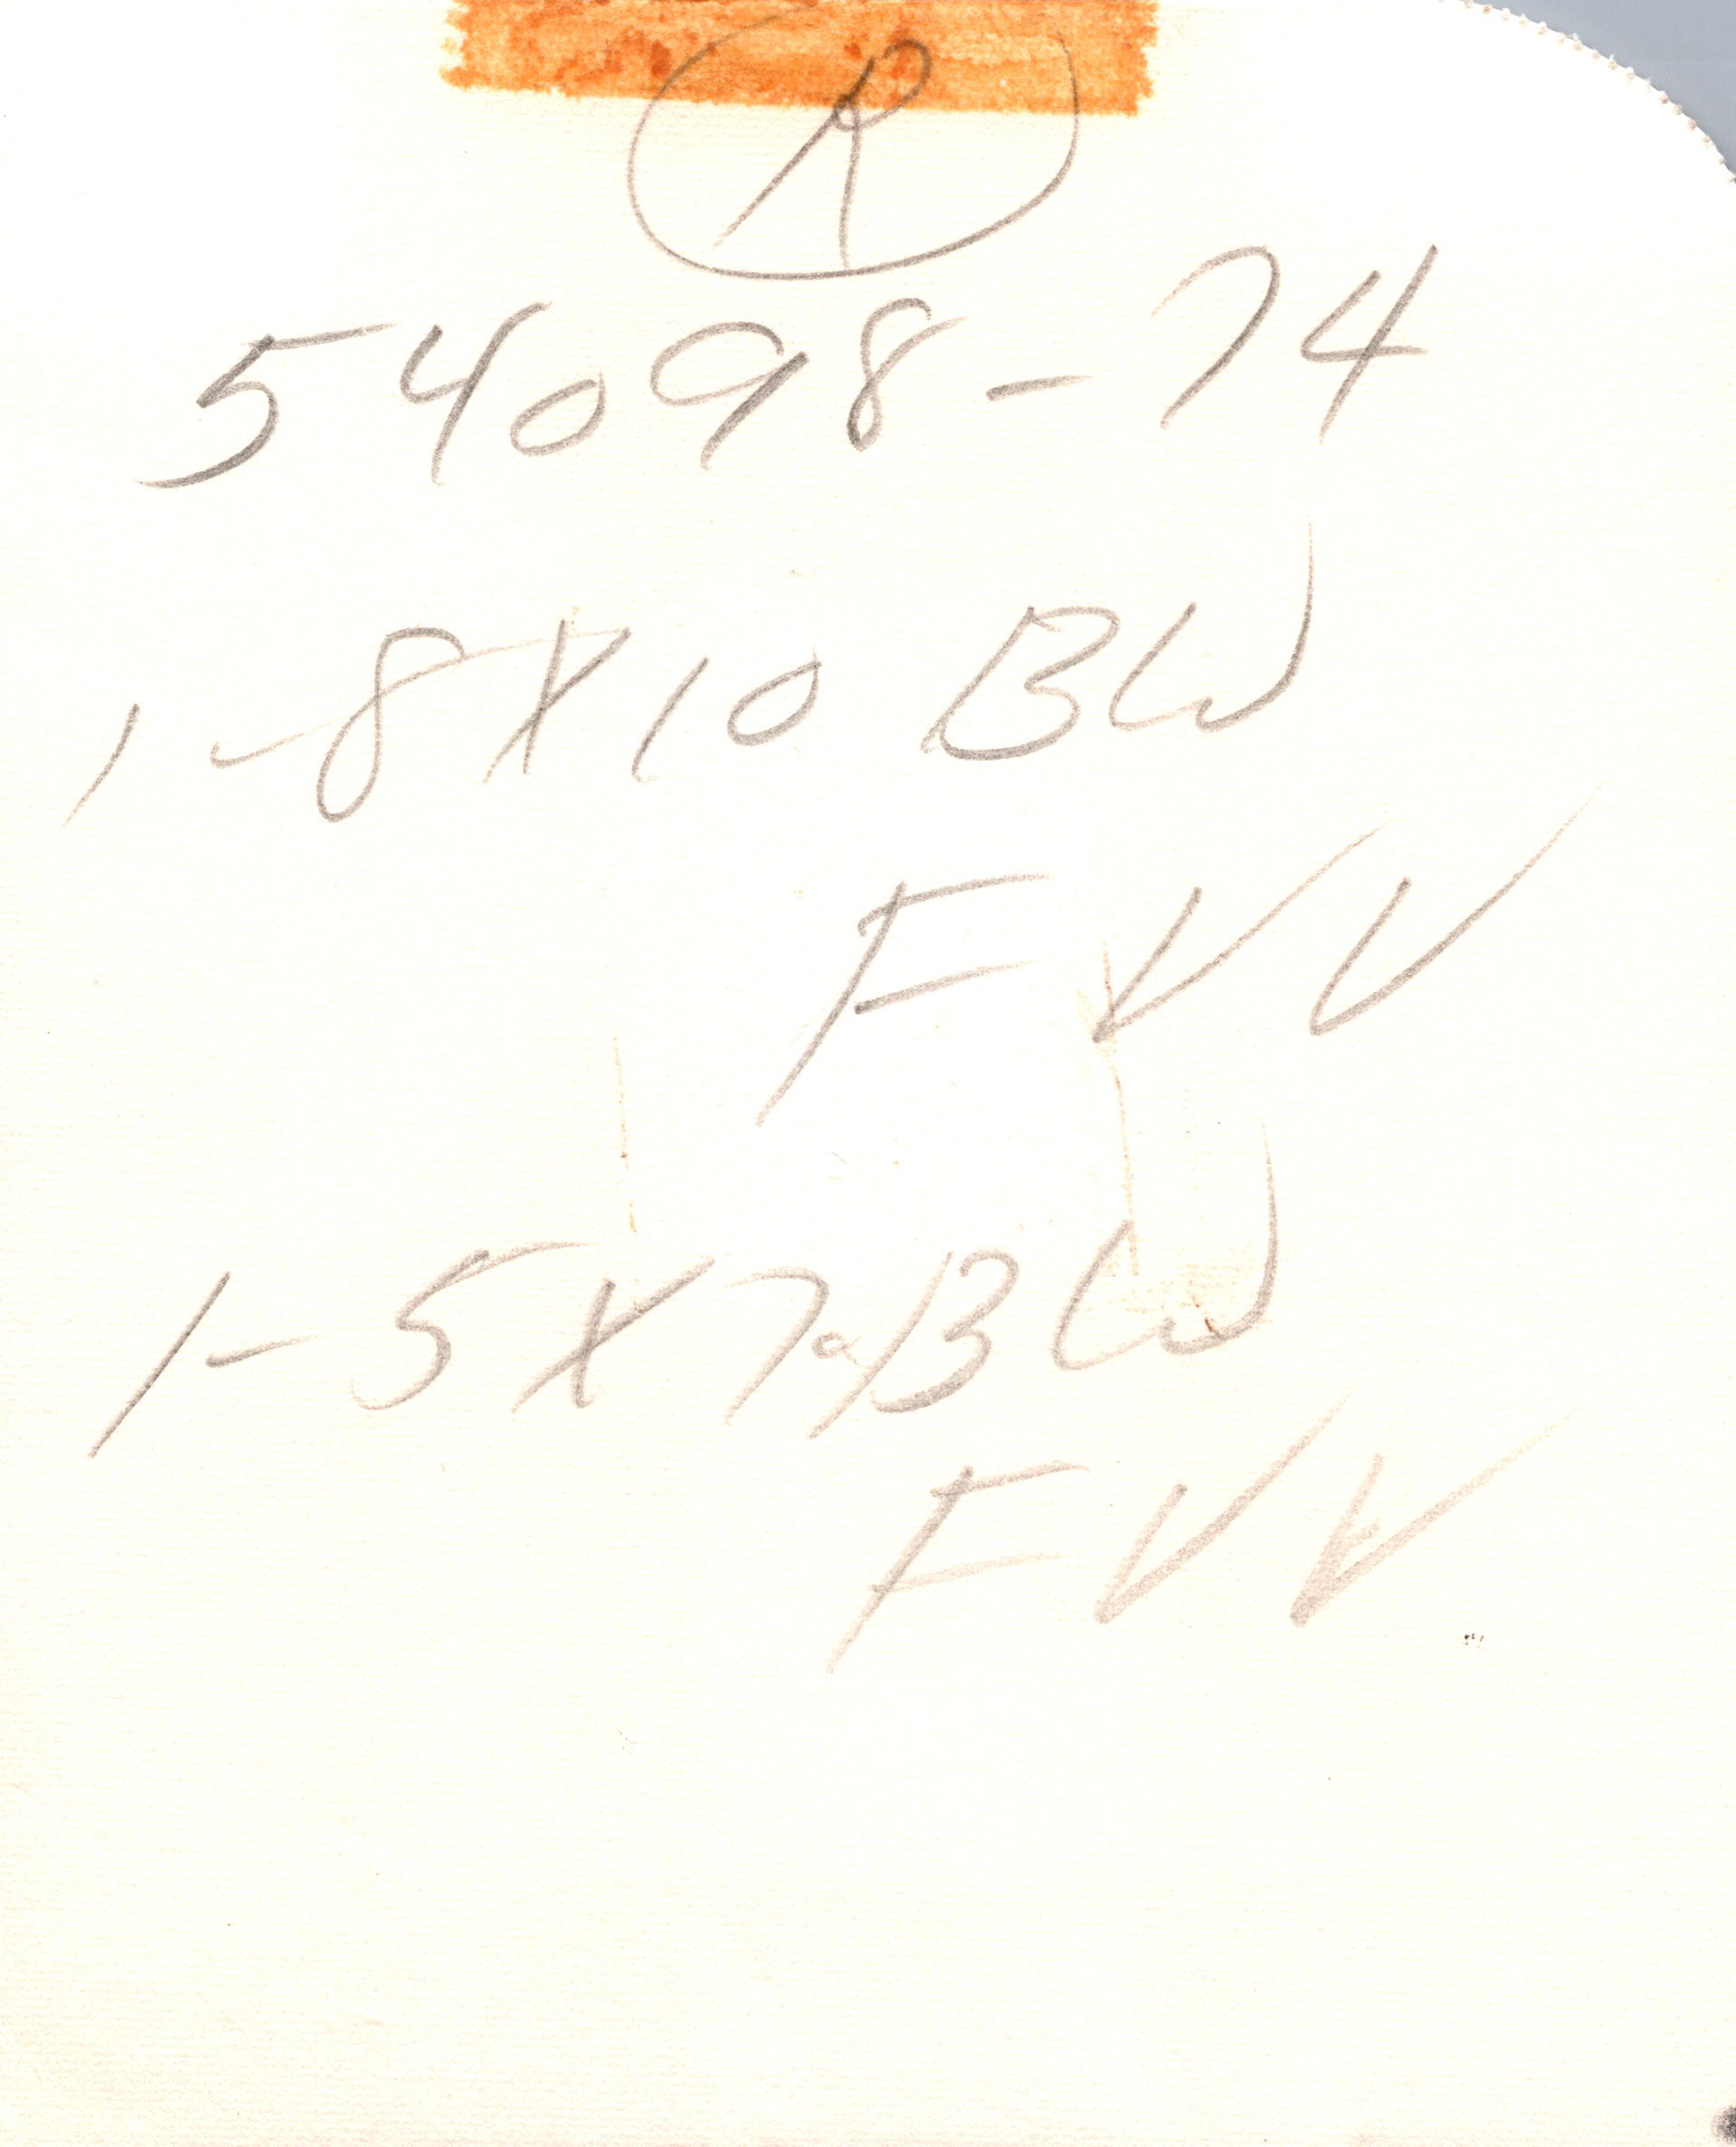 R
54098-74
1-8X10 BW
FVV
1-5X7 BW
FVV